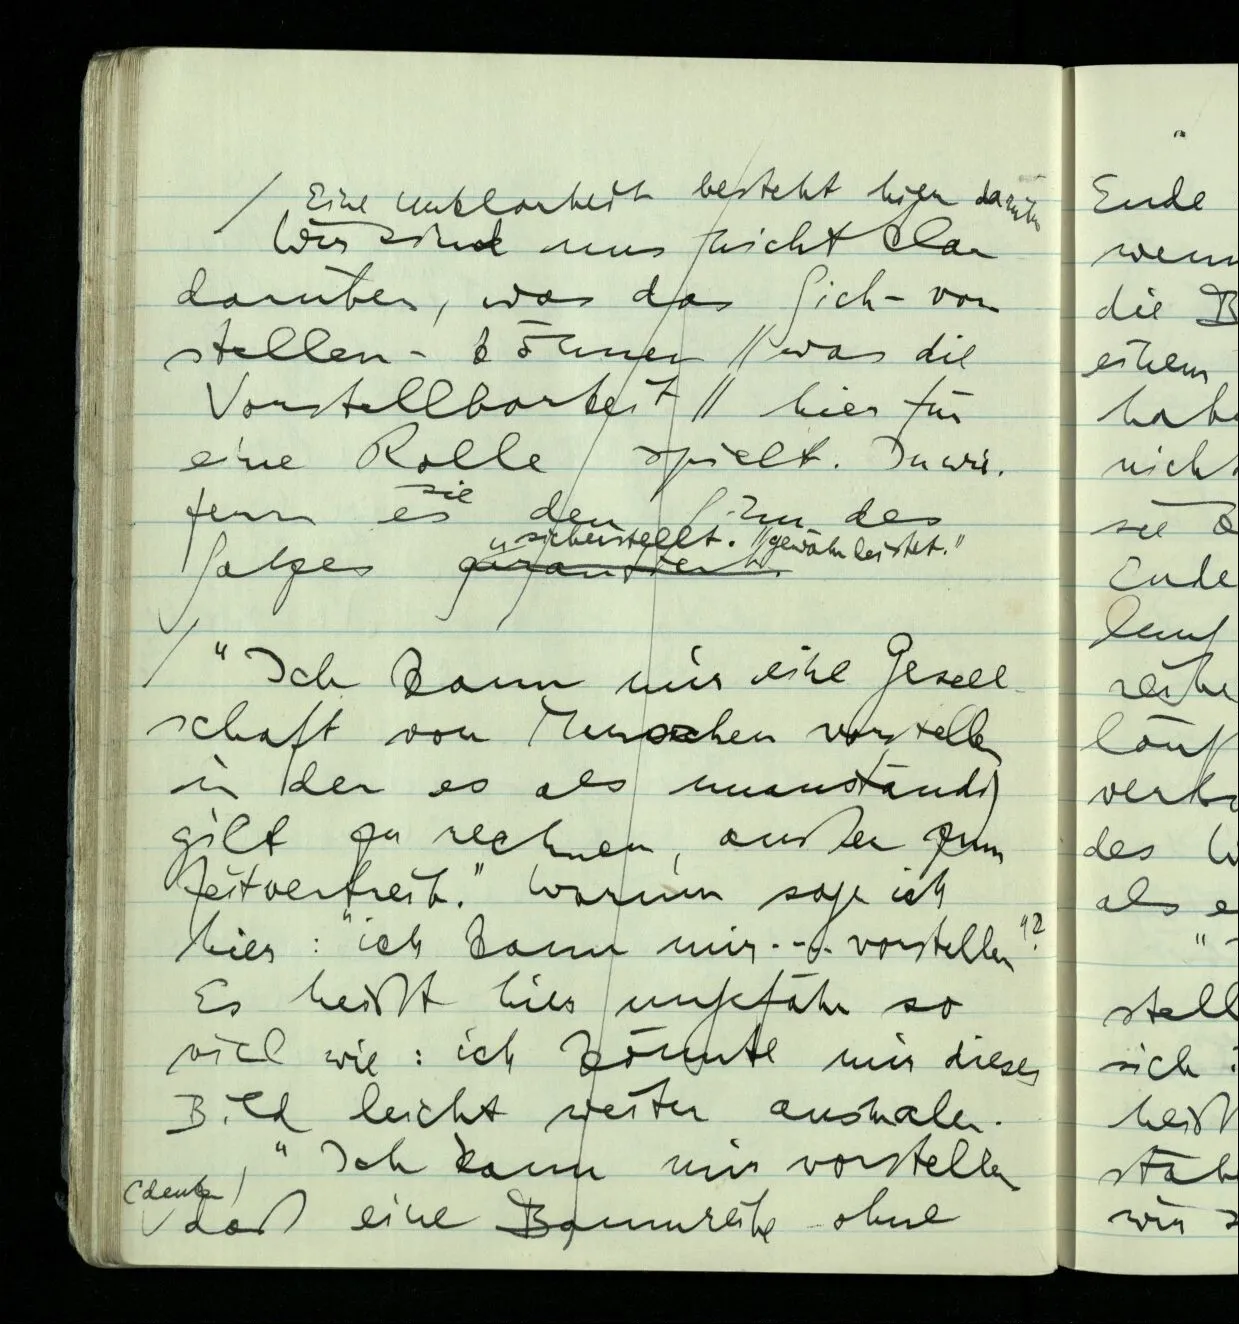 / Eine Unklarheit besteht hier darüber
Wir sind uns nicht klar
darüber, was das Sich-vor-
stellen-können // was die
Vorstellbarkeit // hier für
eine Rolle spielt. Inwie-
fern es sie den Sinn des
"sicherstellt. // gewährleistet."
Satzes garantiert.
/ "Ich kann mir eine Gesell-
schaft von Menschen vorstellen
in der es als unanständig
gilt zu rechnen, außer zum
Zeitvertreib." Warum sage ich
hier: "ich kann mir... vorstellen"?
Es heißt hier ungefähr so
viel wie: ich könnte mir dieses
Bild leicht weiter ausmalen.
"Ich kann mir vorstellen
(denken)
daß eine Baumreihe ohne
Ende
wenn
die B
einem
hab
nicht
Ende
lauf
läuf
des W
als e
"
stell
sich
heißt
wir s